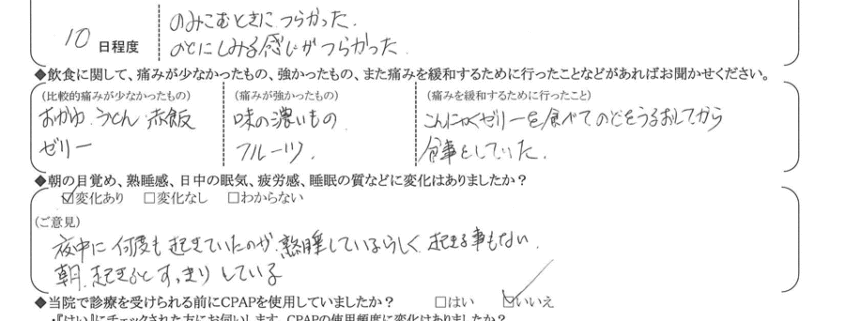 のみこむときにつらかった.
10 日程度 のどにしみる感じがつらかった.
◆飲食に関して、痛みが少なかったもの、強かったもの、また痛みを緩和するために行ったことなどがあればお聞かせください。
(比較的痛みが少なかったもの) (痛みが強かったもの) (痛みを緩和するために行ったこと)
おかゆ.うどん 赤飯 味の濃いもの こんにゃくゼリーを食べてのどをうるおしてから
ゼリー フルーツ. 食事としていた.
◆朝の目覚め、熟睡感、日中の眠気、疲労感、睡眠の質などに変化はありましたか?
☑変化あり □変化なし □わからない
(ご意見)
夜中に何度も起きていたのが.熟睡しているらしく 起きる事もない.
朝.起きるとすっきりしている
◆当院で診療を受けられる前にCPAPを使用していましたか? □はい ☑いいえ
・『はい』にチェックされた方にお伺いします。CPAPの使用頻度に変化はありましたか?